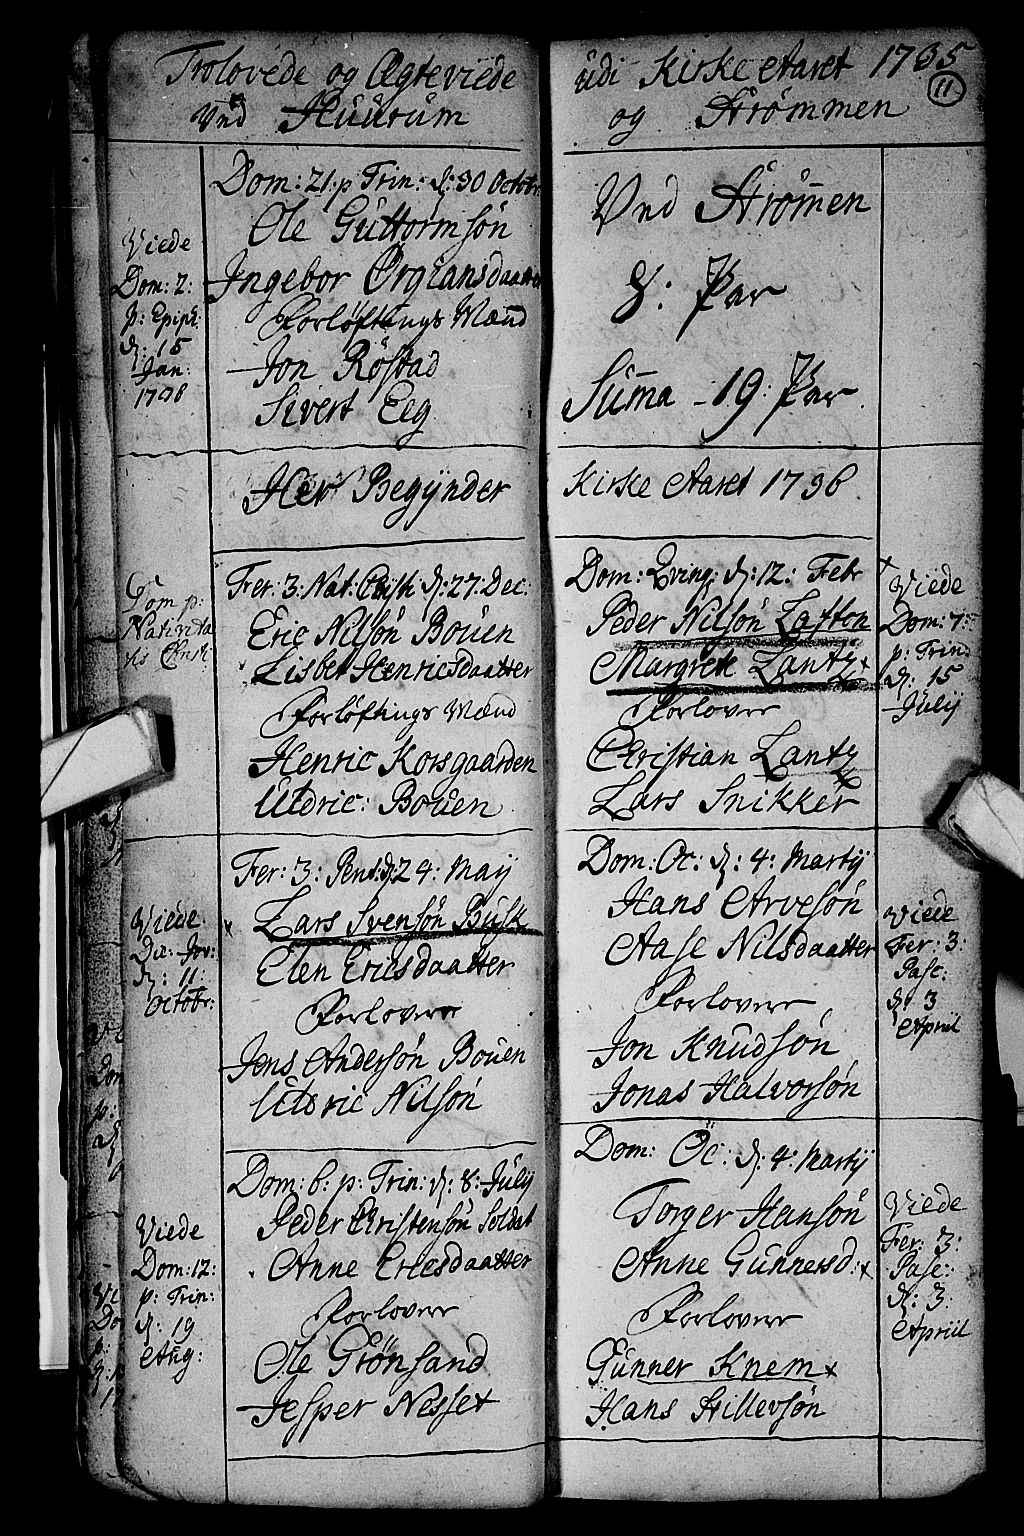 Trolovede og Ægteviede
Vnd Huurum
Dom: 21. p Trin: d: 30 Octobr
Ole Guttormsøn
Ingebor Ørgiansdaatter
Forløftnings Mænd
Jon Røstad
Sivert Eeg
Viede
Dom: 2:
p: Epiph:
d: 15
Jan:
1736
Her Begÿnder
Fer: 3: Nat: Christi d: 27: Dec:
Eric Nilsøn Bouen
Lisbet Henricsdaatter
Forløftnings Mænd
Henric Korsgaarden
Uldric: Bouen
Dom p:
Nativita
tis Christi
Fer: 3: Pent: d: 24: Maÿ
Lars Svensøn Busk
Elen Ericsdaatter
Forlovere
Jens Andersøn Bouen
Uldric Nilsøn
Viede
Die: Jov:
d: 11:
Octobr:
Dom: 6: p: Trin: d: 8: Julÿ
Peder Christensøn Soldat
Anne Ericsdaatter
Forlovere
Ole Grønsand
Jesper Nesset
Viede
Dom: 12:
p: Trin:
d: 19
Aug:
udi Kirke Aaret 1735
11
og Strømmen
Vnd Strømen
8: Par
Suma 19: Par
Kirke Aaret 1736
Dom: Qving: d: 12: Febr
Peder Nilsøn Lafton
Margrete Lantz
Forlover
Christian Lantz
Lars Snikker
Viede
Dom: 7:
p: Trind
d: 15
Julij
Dom: Oc: d: 4: Martij
Hans Arvesøn
Aase Nilsdaatter
Forlovere
Jon Knudsøn
Jonas Halvorsøn
Viede
Fer: 3:
Pasc:
d: 3
Apriil
Dom: Oc: d: 4: Martij
Torger Hansøn
Anne Gunnersd:
Forlovere
Gunner Knem
Hans Hillersøn
Viede
Fer: 3:
Pasc:
d: 3:
Apriil